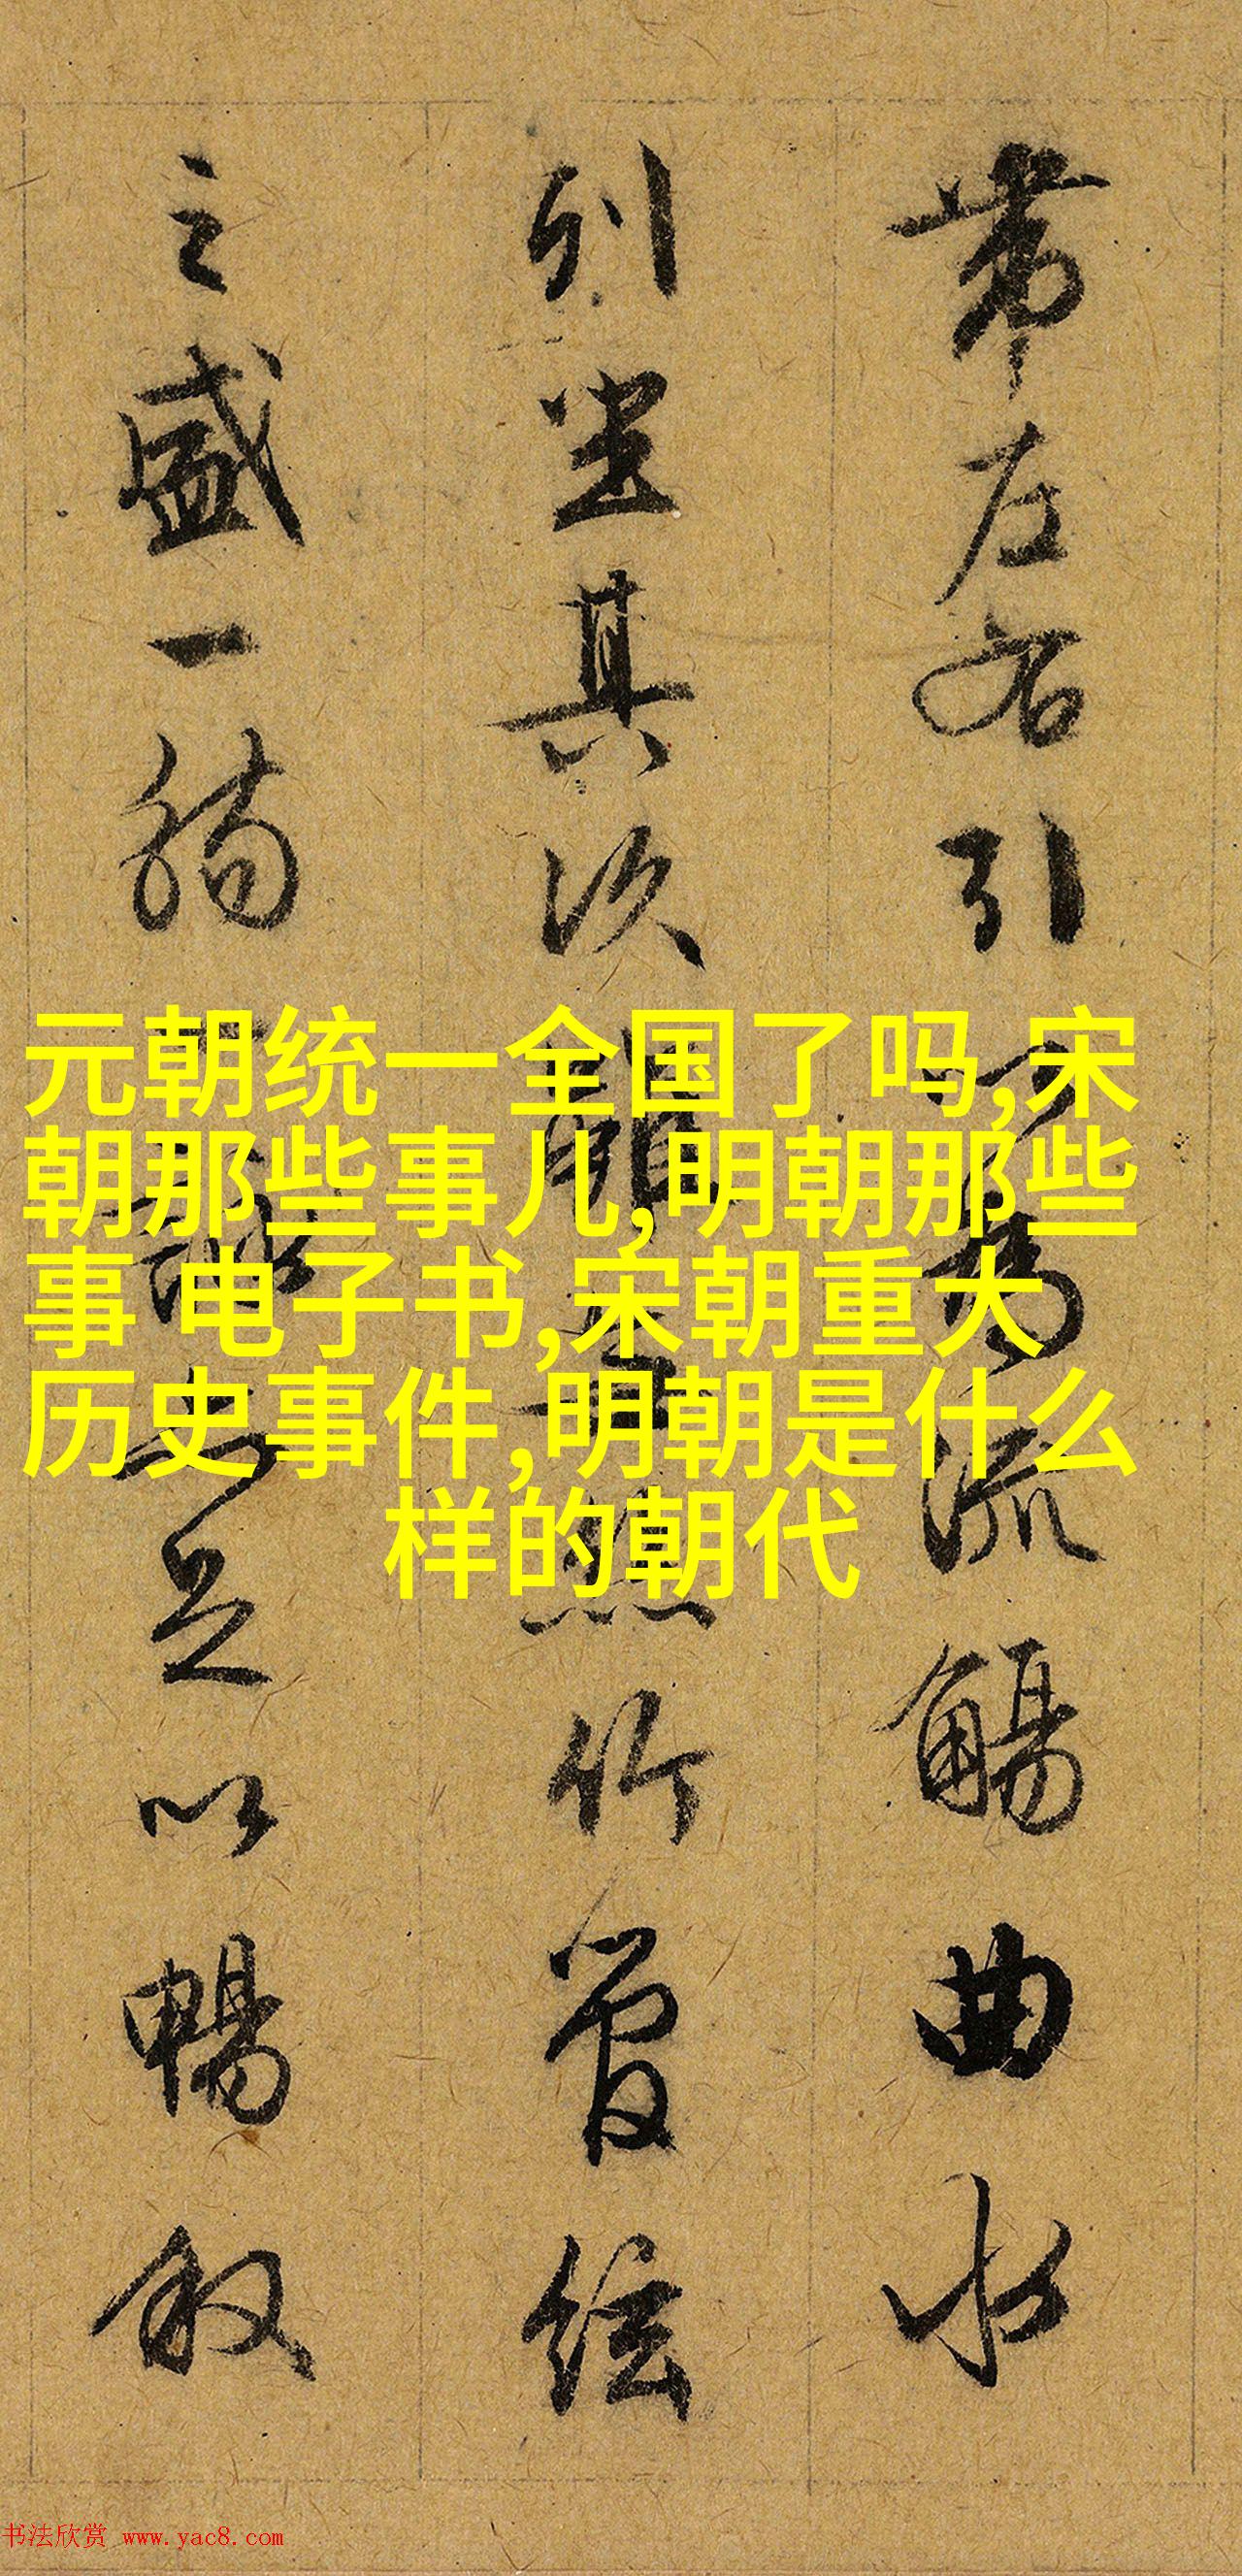 帶左右引以為流觴曲水
列坐其次雖無絲竹管絃
之盛一觴一詠亦足以暢敘
元朝统一全国了吗,宋
朝那些事儿,明朝那些
事 电子书,宋朝重大
历史事件,明朝是什么
样的朝代
书法欣赏 www.yac8.com